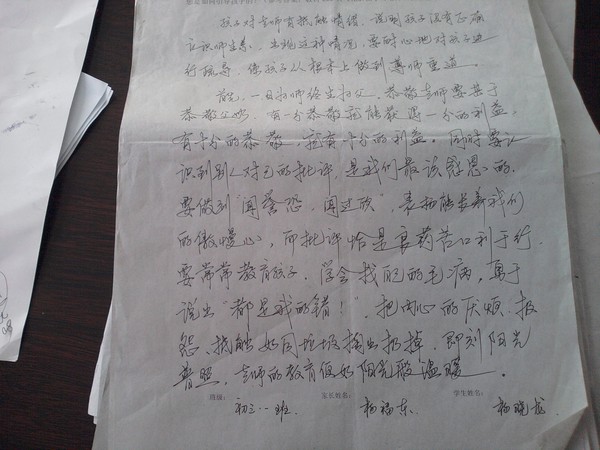 孩子对老师有抵触情绪，说明孩子没有正确
认识师生关系，出现这种情况，要耐心地对孩子进
行疏导，使孩子从根本上做到尊师重道。
首先，一日为师终生为父，恭敬老师要甚于
恭敬父母，有一分恭敬就能获得一分的利益，
有十分的恭敬，就有十分的利益。同时要认
识到别人对己的批评，是我们最该感恩的，
要做到“闻誉恐，闻过欣”，表扬能长养我们
的傲慢心，而批评恰是良药苦口利于行，
要常常教育孩子，学会找自己的毛病，勇于
说出“都是我的错！”，把内心的厌烦、报
怨、抵触如同垃圾掏出扔掉，即刻阳光
普照，老师的教育便如阳光般温暖。
班级： 初三·一班 家长姓名： 杨福东 学生姓名： 杨晓龙